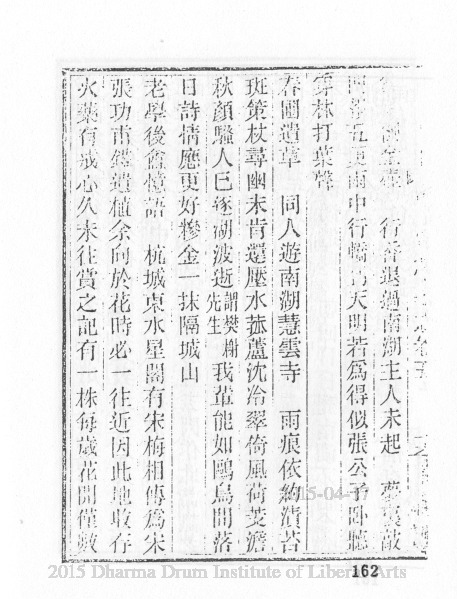 行香退過南湖主人未起
五更雨中行轎 天明若為得似張公子臥聽
林打葉聲
春圃遺草　同人遊南湖慧雲寺　雨痕依約漬苔
斑策杖尋幽未肯還壓水菰蘆沈冶翠倚風荷芰澹
秋顏騷人已逐湖波逝謂樊榭先生我輩能如鷗鳥閒落
日詩情應更好糝金一抹隔城山
老學後盦憶語　杭城東水星閣有宋梅相傳為宋
張功甫 遺植余向於花時必一往近因此地收存
火藥有戒心久未往賞之記有一株每歲花開僅數
162
2015 Dharma Drum Institute of Liberal Arts